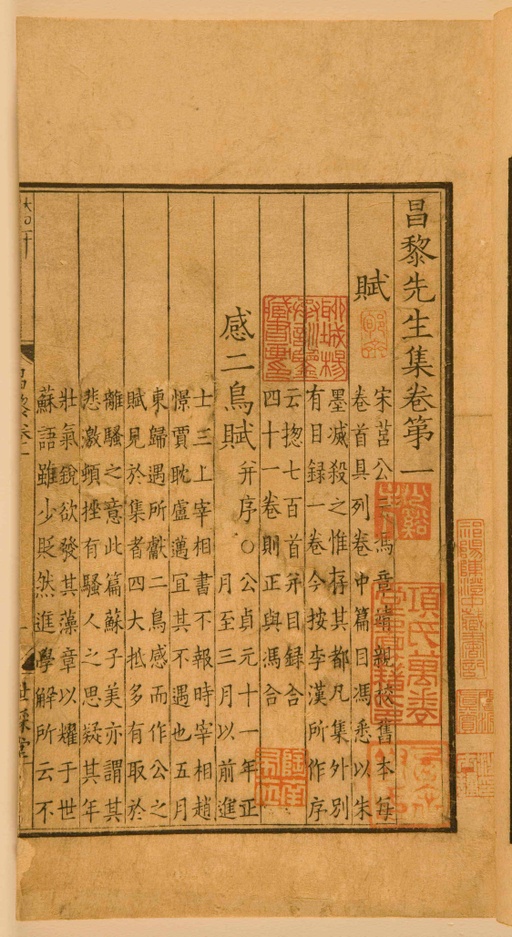 昌黎先生集卷第一
賦
宋莒公云馮章靖親校舊本每
卷首具列卷中篇目馮悉以朱
墨滅殺之惟存其都凡集外別
有目録一卷今按李漢所作序
云揔七百首并目録合
四十一卷則正與馮合
感二鳥賦
并序○公貞元十一年正
月至三月以前進
士三上宰相書不報時宰相趙
憬賈耽盧邁宜其不遇也五月
東歸遇所獻二鳥感而作公之
賦見於集者四大抵多有取於
離騷之意此篇蘇子美亦謂其
悲激頓挫有騷人之思疑其年
壯氣銳欲發其藻章以耀于世
蘇語雖少貶然進學解所云不
昌黎卷一
世綵堂
聊城楊
承訓鑒
藏書畫印
項氏萬卷
堂圖籍印